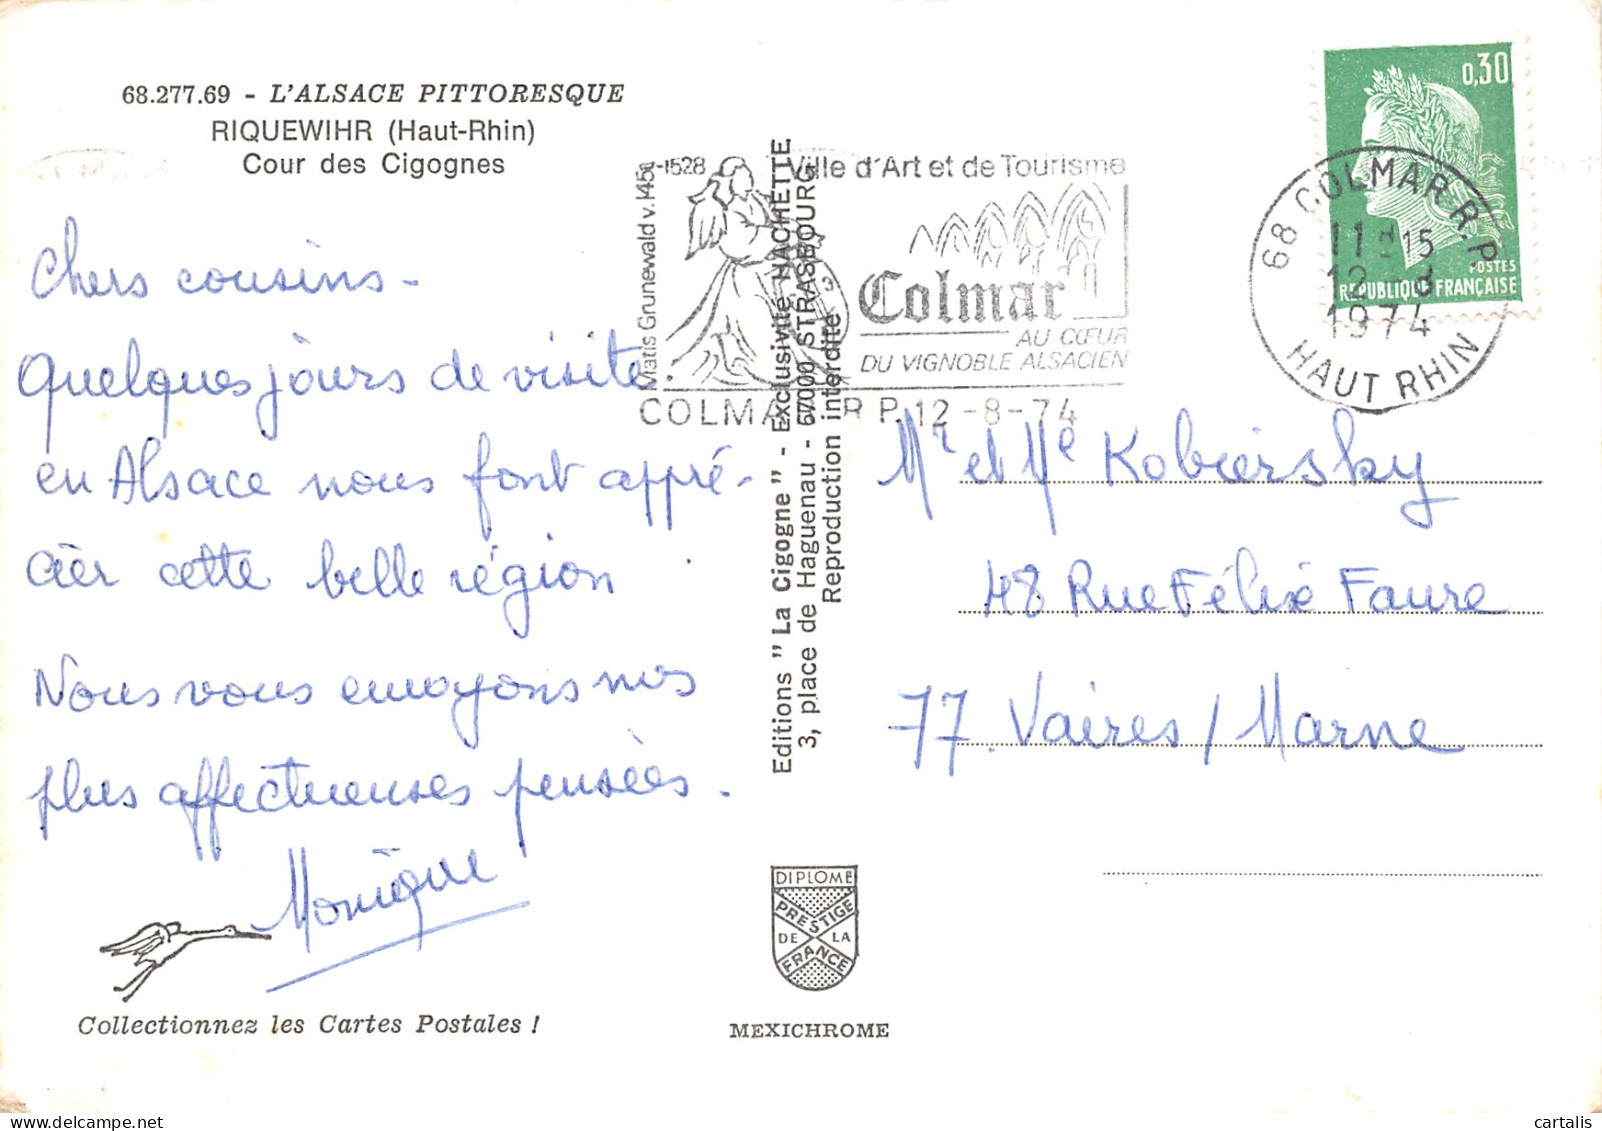 68.277.69 - L'ALSACE PITTORESQUE
RIQUEWIHR (Haut-Rhin)
Cour des Cigognes
Chers cousins -
Quelques jours de visite
en Alsace nous font appré-
cier cette belle région
Nous vous envoyons nos
plus affectueuses pensées.
Monique
Collectionnez les Cartes Postales !
Editions "La Cigogne" - Exclusivité HACHETTE
3, place de Haguenau - 67000 STRASBOURG
Reproduction interdite
DIPLOME
PRESTIGE
DE LA
FRANCE
MEXICHROME
Matis Grunewald v.145 -1528
Ville d'Art et de Tourisme
Colmar
AU CŒUR
DU VIGNOBLE ALSACIEN
COLMAR R.P. 12-8-74
68 COLMAR R.P.
11 H 15
12 - 8
1974
HAUT RHIN
0,30
POSTES
REPUBLIQUE FRANÇAISE
Mr et Me Kobiersky
48 Rue Félix Faure
77. Vaires / Marne
cartalis